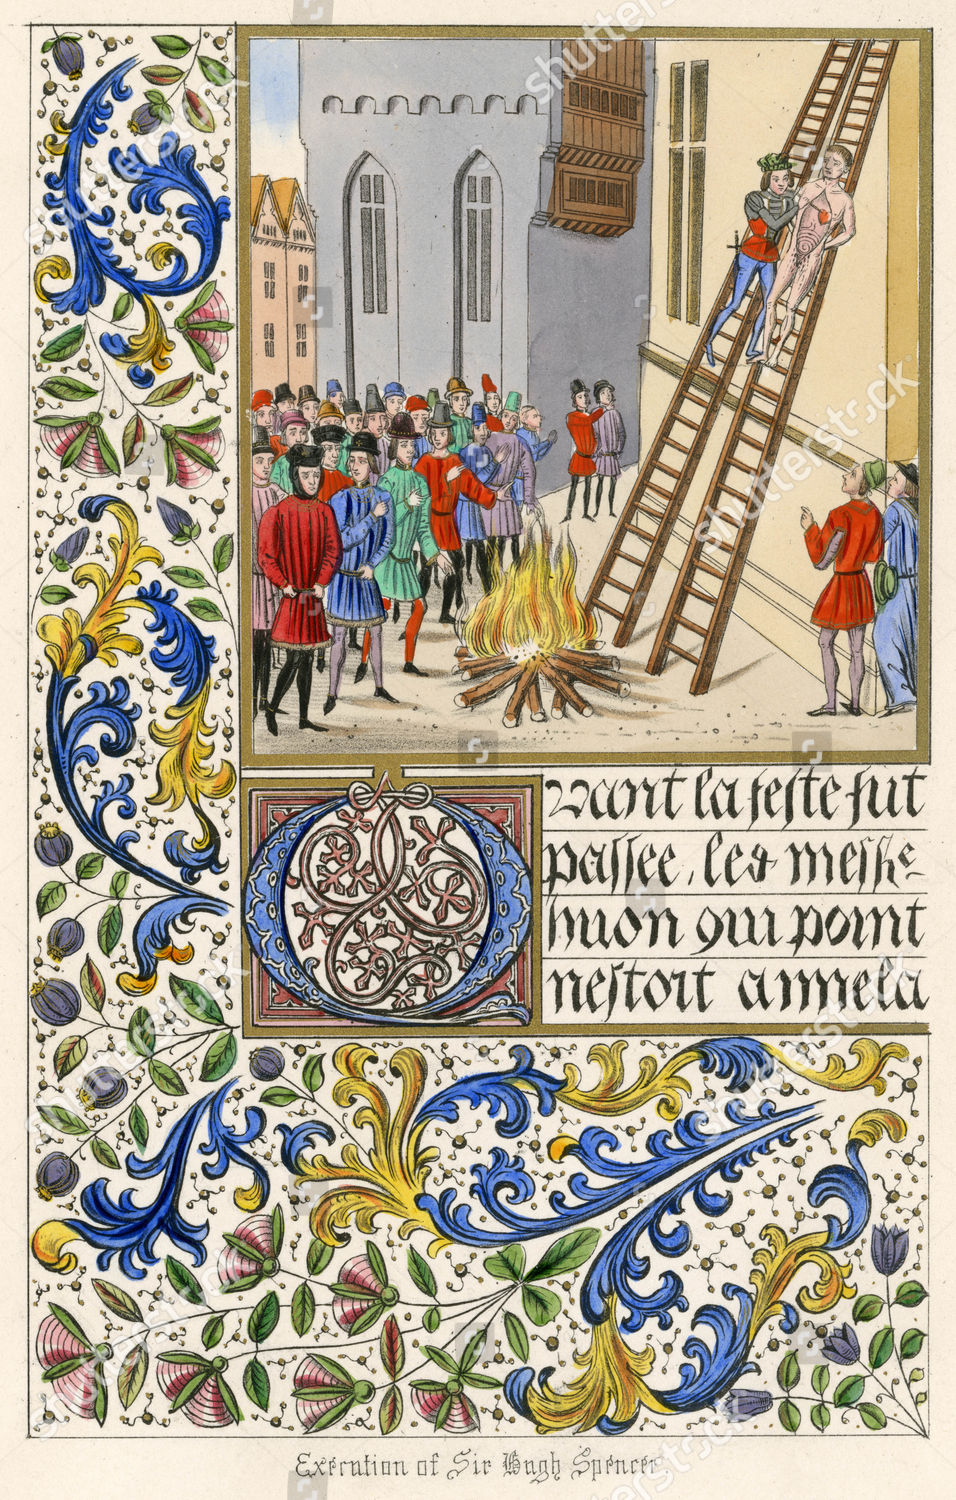 Quant la feste fut
passee, les mess^e
huon qui point
nestoit aimela
Execution of Sir Hugh Spencer
shutterstock